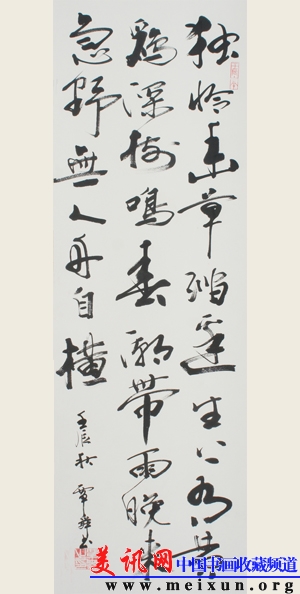 独怜幽草澗邊生上有黄
鸝深树鳴春潮帶雨晚来
急野無人舟自横
壬辰秋
美讯网 中国书画收藏频道
www.meixun.org